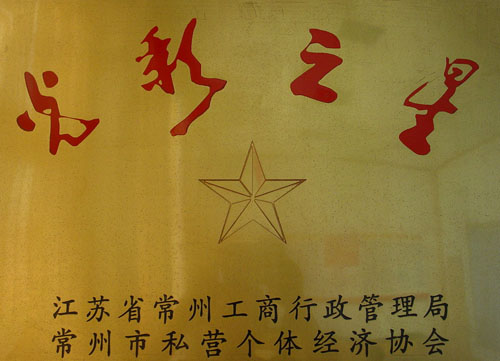 光彩之星
江苏省常州工商行政管理局
常州市私营个体经济协会